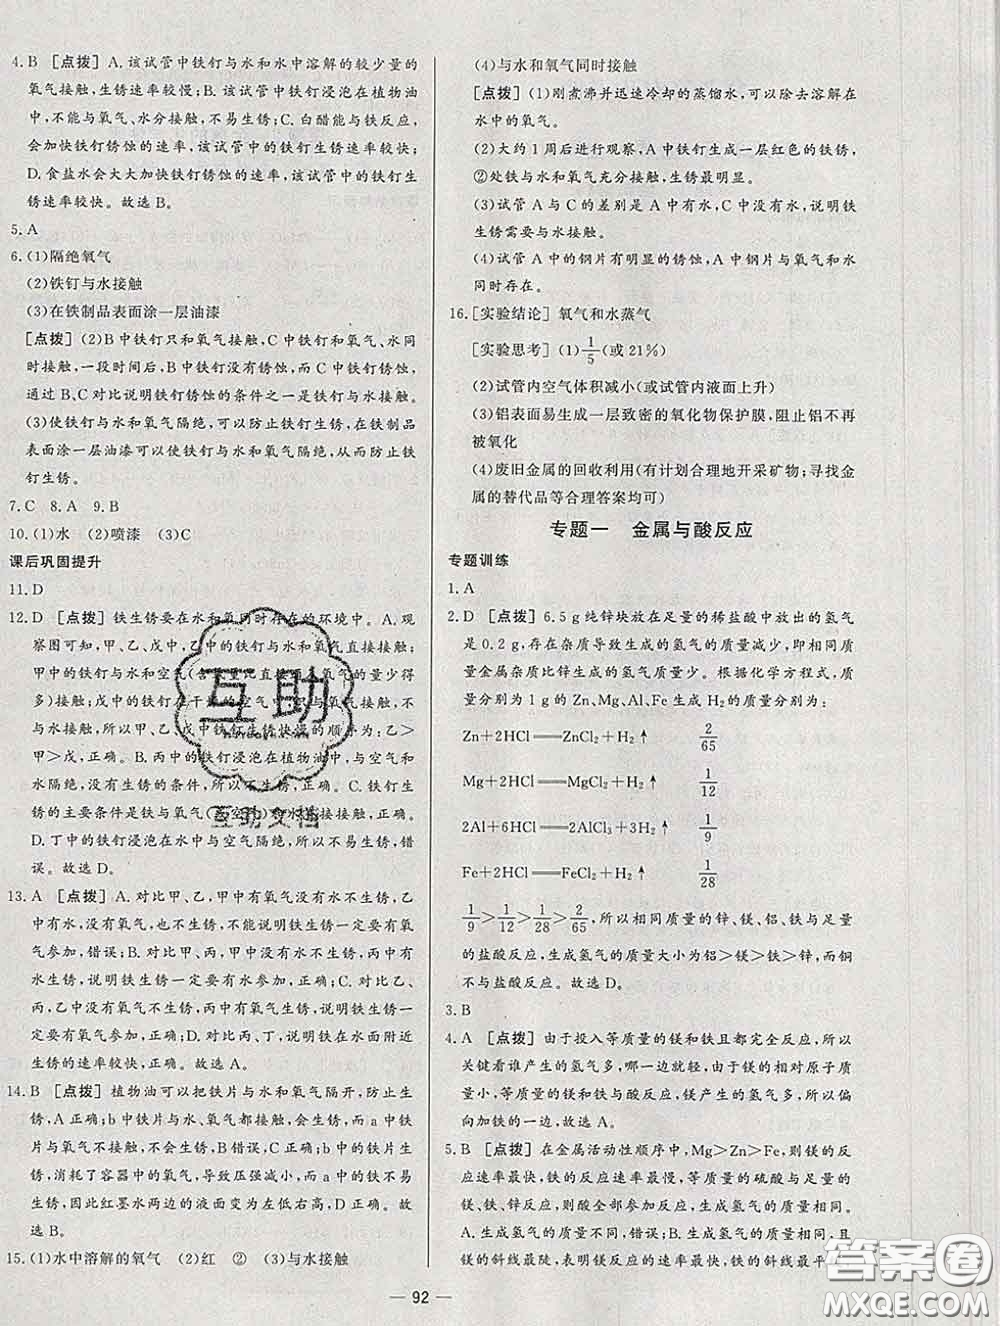 4. B [点拨] A. 该试管中铁钉与水和水中溶解的较少量的
氧气接触,生锈速率较慢;B. 该试管中铁钉浸泡在植物油
中,不能与氧气、水分接触,不易生锈;C. 白醋能与铁反应,
会加快铁钉锈蚀的速率,该试管中的铁钉生锈速率较快;
D. 食盐水会大大加快铁钉锈蚀的速率,该试管中的铁钉生
锈速率较快。故选 B。
5. A
6. (1)隔绝氧气
(2)铁钉与水接触
(3)在铁制品表面涂一层油漆
[点拨] (2)B 中铁钉只和氧气接触,C 中铁钉与氧气、水同
时接触,一段时间后,B 中铁钉没有锈蚀,而 C 中铁钉锈蚀,
通过 B、C 对比说明铁钉锈蚀的条件之一是铁钉与水接触。
(3)使铁钉与水和氧气隔绝,可以防止铁钉生锈,在铁制品
表面涂一层油漆可以使铁钉与水和氧气隔绝,从而防止铁
钉生锈。
7. C 8. A 9. B
10. (1)水 (2)喷漆 (3)C
课后巩固提升
11. D
12. D [点拨] 铁生锈要在水和氧同时存在的环境中。A. 观
察图可知,甲、乙、戊中,乙中的铁钉与水和氧气直接接触;
甲中的铁钉与水和空气(含
多)接触;戊中的铁钉在干燥的空气中只与氧气接触,不
与水接触,所以甲、乙、戊中铁钉生锈快慢的顺序为:乙>
甲>戊,正确。B. 丙中的铁钉浸泡在植物油中,与空气和
水隔绝,所以不生锈,所以不会生锈,正确。C. 铁钉生
锈的主要条件是铁与氧气(或空气)和水直接接触,正
确。D. 丁中的铁钉浸泡在水中与空气隔绝,所以不生锈,错
误。故选 D。
13. A [点拨] A. 对比甲、乙,甲中有氧气没有水不生锈,乙中
有水,没有氧气,也不生锈,不能说明生锈一定要有氧气
参加,错误;B. 对比甲、丙,甲中没有水不生锈,丙中有水
有水生锈,说明铁生锈一定要有水参加,正确;C. 对比乙、
丙,乙中没有氧气不生锈,丙中有氧气生锈,说明铁生锈一
定要有氧气参加,正确;D. 对比丁、丙,说明铁在水面附近
生锈的速率较快,正确。故选 A。
14. B [点拨] 植物油可以把铁片与水和氧气隔开,防止生
锈,A 正确;b 中铁片与水、氧气都接触,会生锈,而 a 中铁
片与氧气不接触,不会生锈,B 错误、C 正确;b 中的铁片生
锈,消耗了容器中的氧气,导致压强减小,而 a 中的铁片不
生锈,因此红墨水两边的液面变为左低右高,D 正确。故
选 B。
15. (1)水中溶解的氧气 (2)红 ② (3)与水接触
(4)与水和氧气同时接触
[点拨] (1)刚煮沸并迅速冷却的蒸馏水,可以除去溶解在
水中的氧气。
(2)大约 1 周后进行观察,A 中铁钉生成一层红色的铁锈,
②处铁与水和氧气充分接触,生锈最明显。
(3)试管 A 与 C 的差别是 A 中有水,C 中没有水,说明铁
生锈需要与水接触。
(4)试管 A 中的钢片有明显的锈蚀,A 中钢片与氧气和水
同时存在。
16. [实验结论] 氧气和水蒸气
[实验思考] (1)1/5(或 21%)
(2)试管内空气体积减小(或试管内液面上升)
(3)铝表面易生成一层致密的氧化物保护膜,阻止铝不再
被氧化
(4)废旧金属的回收利用(有计划合理地开采矿物;寻找金
属的替代品等合理答案均可)
专题一 金属与酸反应
专题训练
1. A
2. D [点拨] 6.5 g 纯锌块放在足量的稀盐酸中放出的氢气
是 0.2 g,存在杂质导致生成的氢气质量减少,即相同质
量金属杂质比锌生成的氢气质量少。根据化学方程式,质
量分别为 1 g 的 Zn、Mg、Al、Fe 生成 H₂ 的质量分别为:
Zn+2HCl══ZnCl₂+H₂↑ 2/65
Mg+2HCl══MgCl₂+H₂↑ 1/12
2Al+6HCl══2AlCl₃+3H₂↑ 1/9
Fe+2HCl══FeCl₂+H₂↑ 1/28
1/9>1/12>1/28>2/65,所以相同质量的锌、镁、铝、铁与足量
的盐酸反应,生成氢气质量大小为铝>镁>铁>锌,而铜
不与盐酸反应。故选 D。
3. B
4. A [点拨] 由于投入等质量的镁和铁且都完全反应,所以
关键看谁产生的氢气多,哪一边就更轻。由于镁的相对原子质
量小,等质量的镁和铁与酸反应,镁产生的氢气多,所以指针偏
向加铁的一边,故选 A。
5. B [点拨] 在金属活动性顺序中,Mg>Zn>Fe,则镁的反
应速率最快,铁的反应速率最慢;等质量的硫酸与足量的
镁、铁、锌反应,则酸完全反应,生成氢气的质量相同。
A. 生成氢气的质量不同,错误;B. 生成氢气的质量相同,且
镁的斜线最陡,表示镁反应速率最快,铁的斜线最平
92
互助
互助文档
答案圈
MXQE.COM